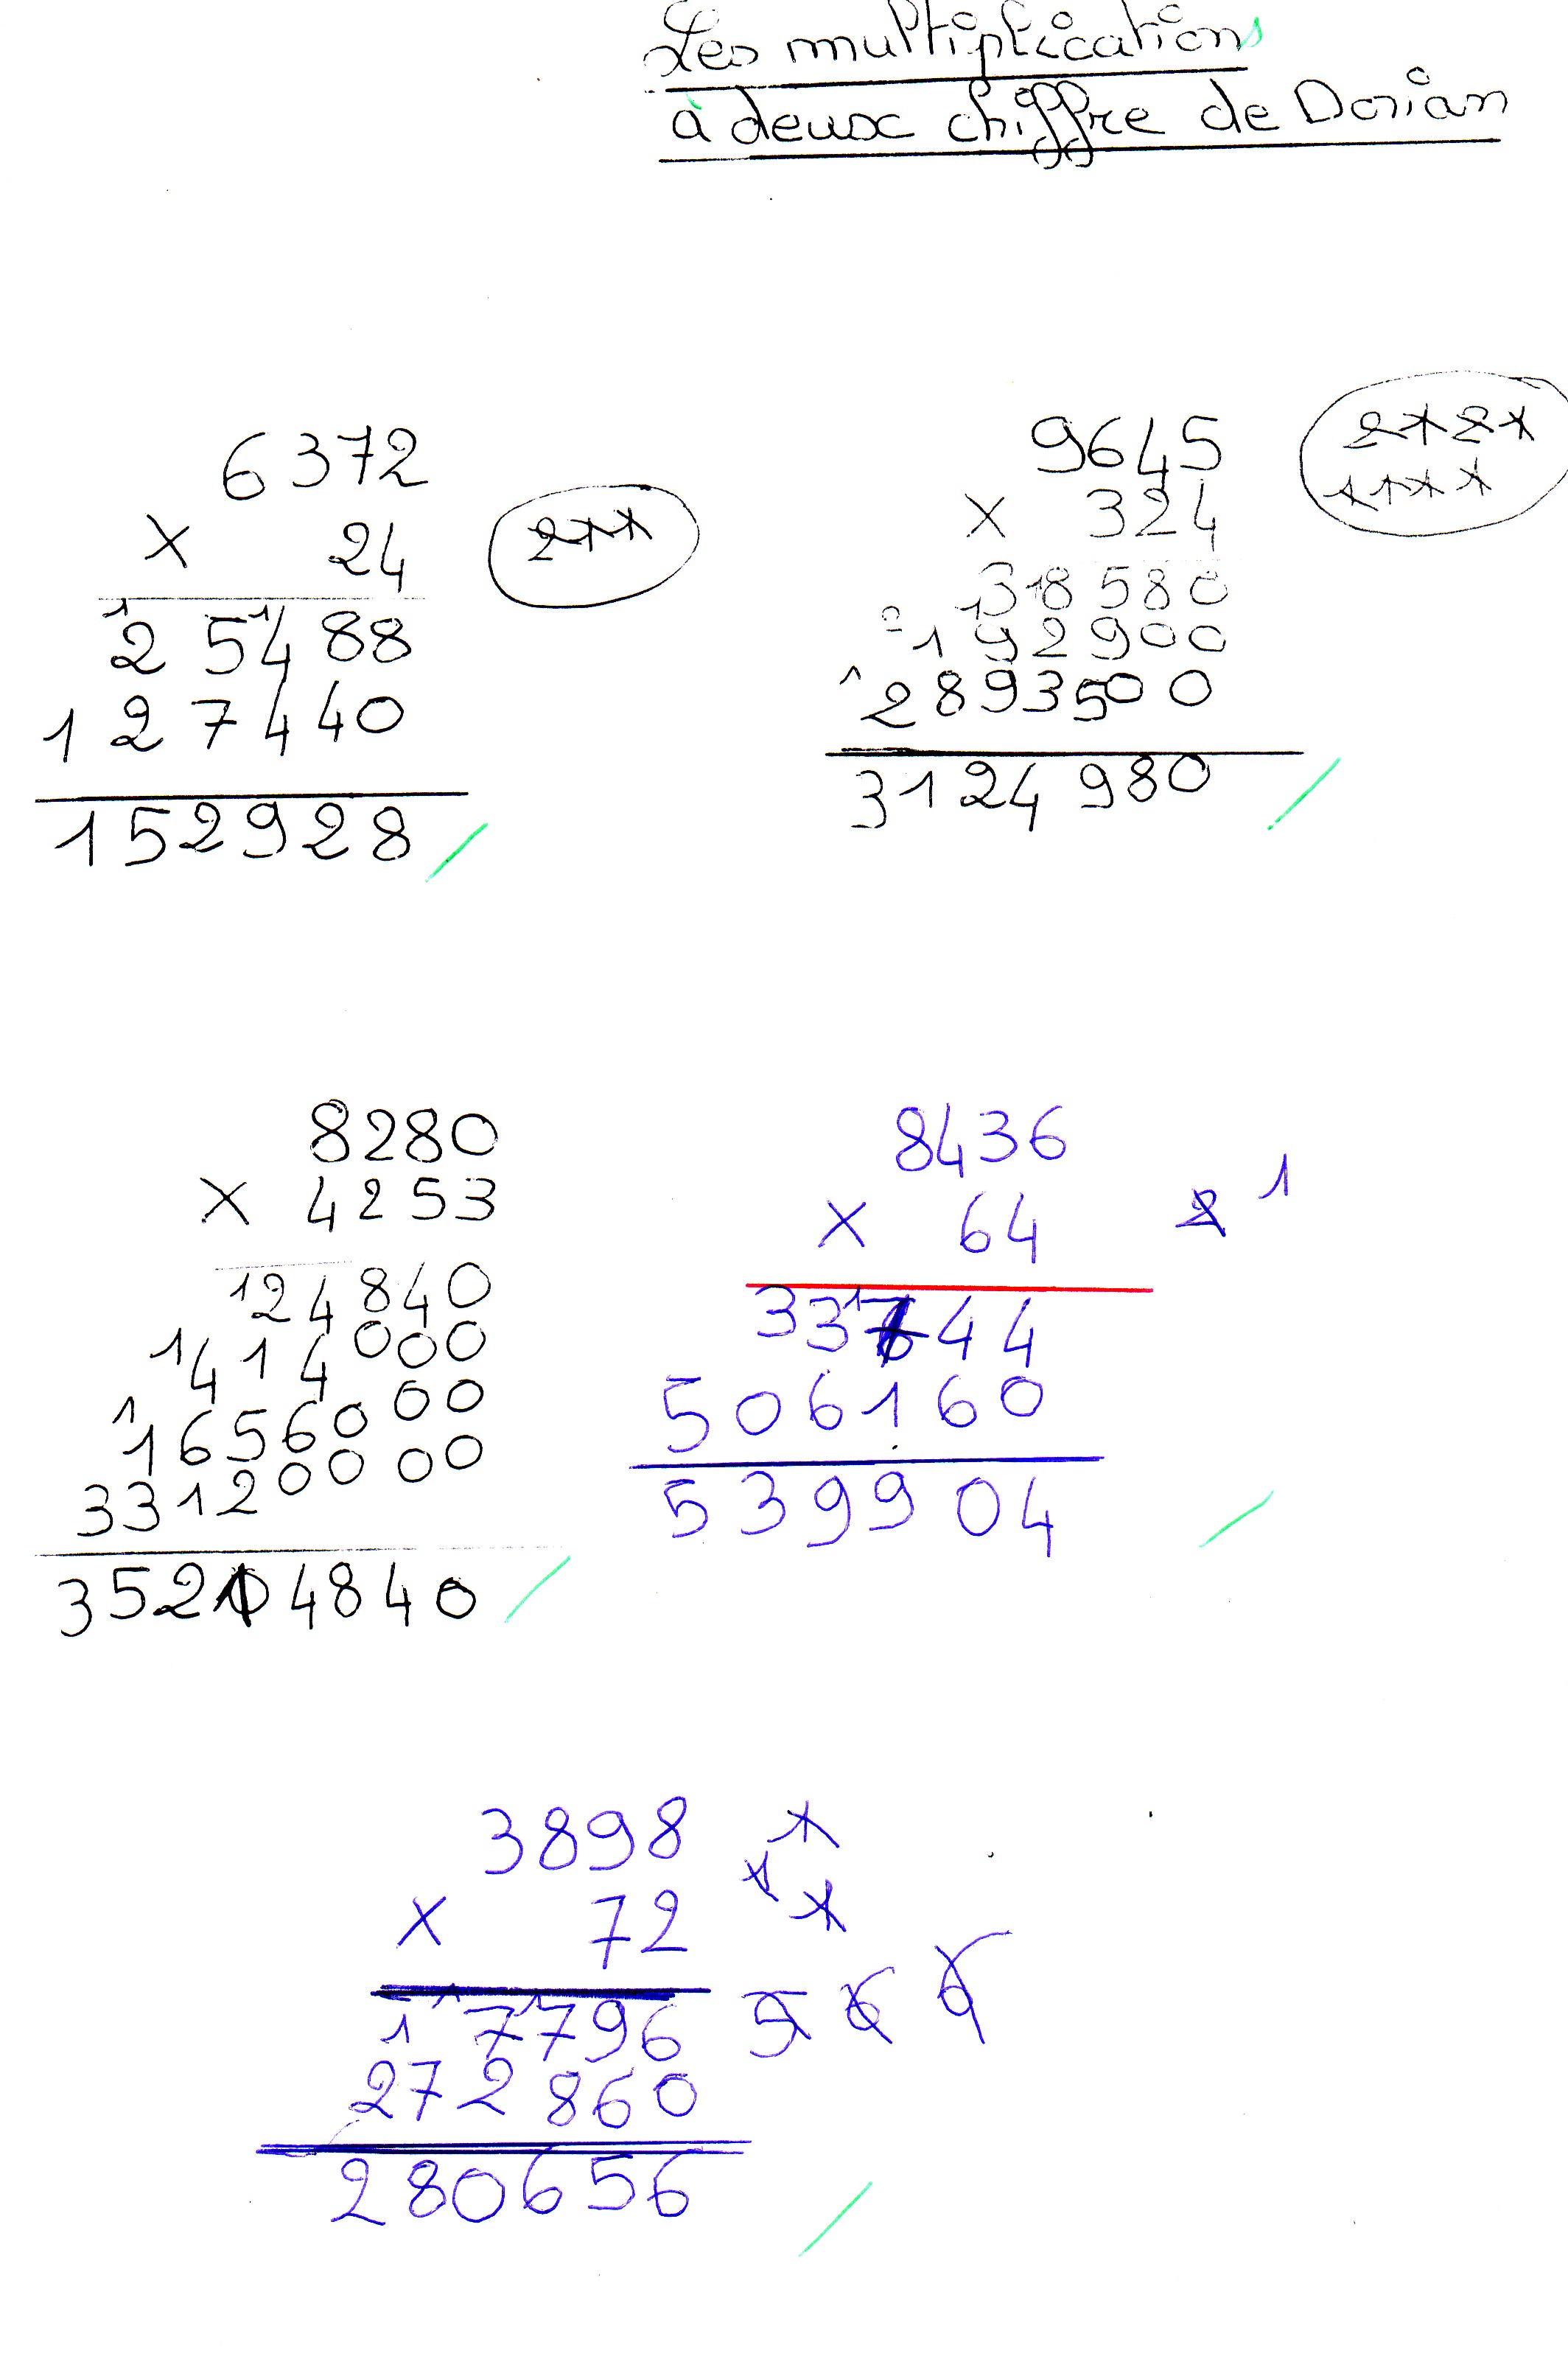 Les multiplications
à deux chiffre de Dorian
6372
× 24
25488
127440
152928
9645
× 324
38580
192900
2893500
3124980
8280
× 4253
24840
414000
1656000
33120000
35214840
8436
× 64
1
33744
506160
539904
3898
× 72
7796
272860
280656